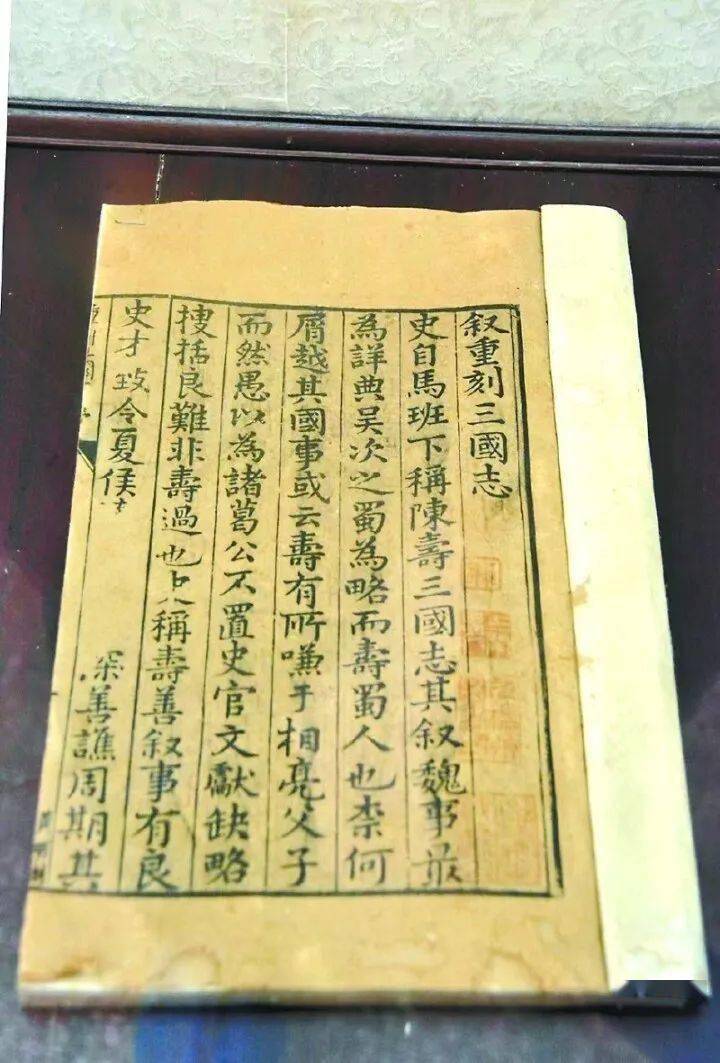 叙重刻三國志
史自馬班下稱陳壽三國志其叙魏事最
為詳典吳次之蜀為略而壽蜀人也柰何
屑越其國事或云壽有所嗛于相亮父子
而然愚以為諸葛公不置史官文獻缺略
捜括良難非壽過也稱壽善叙事有良
史才致令夏侯
深善譙周期其